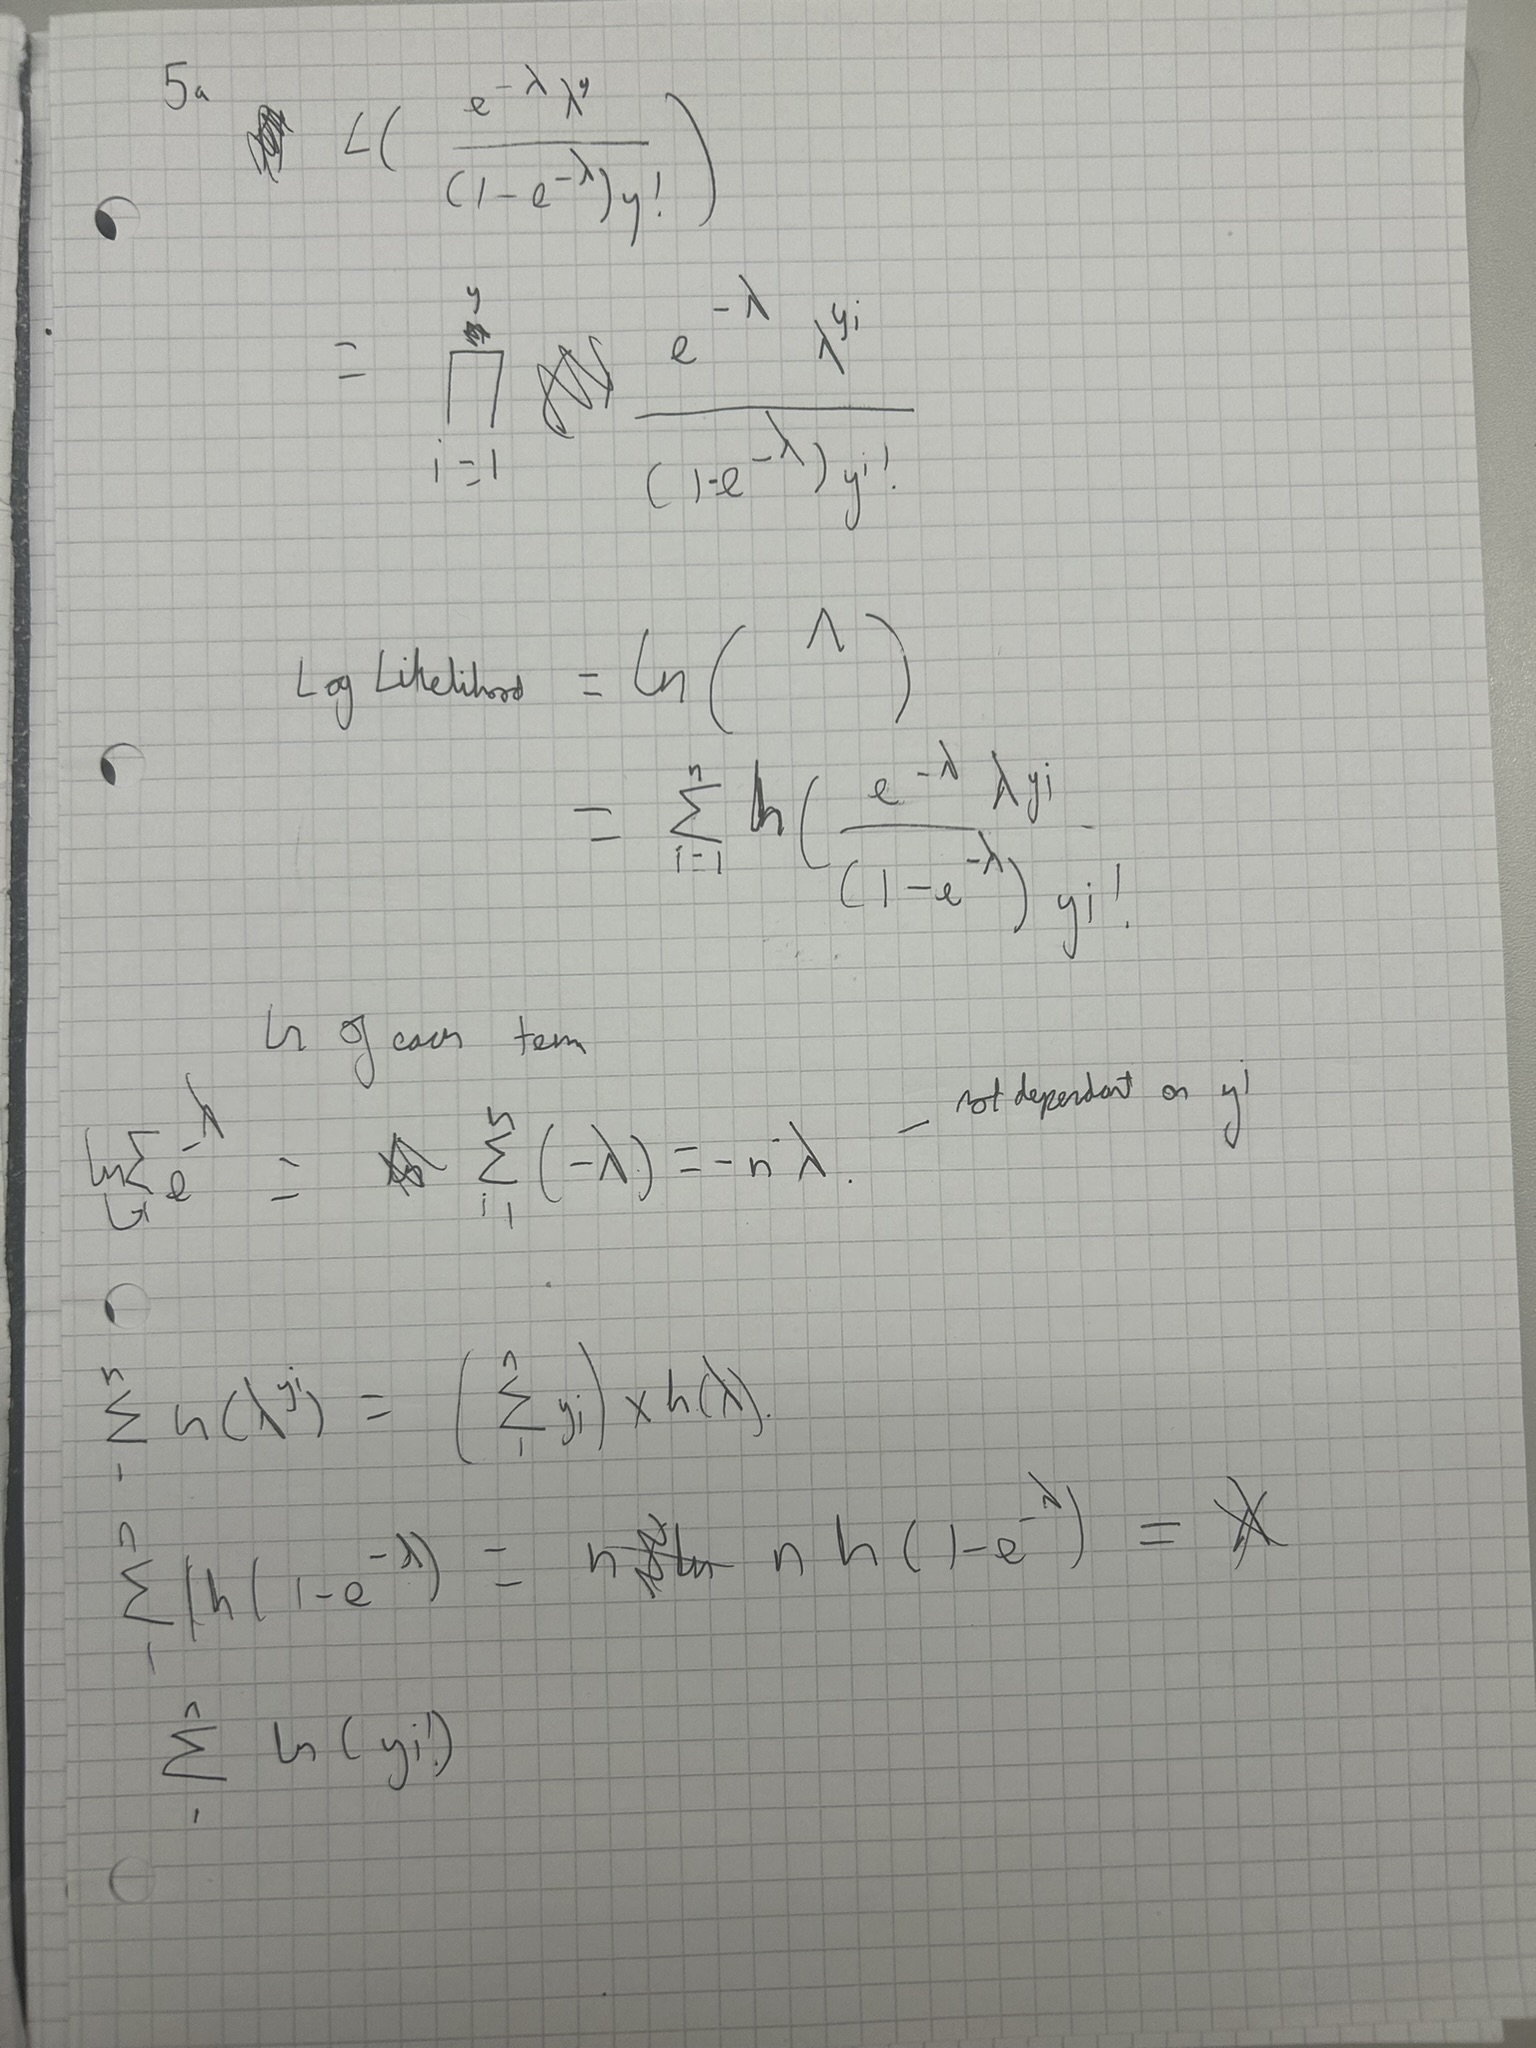 5a
L( e^{-λ} λ^y / (1-e^{-λ}) y! )
= ∏_{i=1}^{y} e^{-λ} λ^{yi} / (1-e^{-λ}) yi!
Log Likelihood = ln( ^ )
= Σ_{i=1}^{n} ln( e^{-λ} λ^{yi} / (1-e^{-λ}) yi!
ln of each term
ln Σ e^{-λ} = Σ_{i=1}^{n} (-λ) = -nλ. - not dependant on yi
Σ_{1}^{n} ln(λ^{yi}) = (Σ_{1}^{n} yi) × ln(λ).
Σ_{1}^{n} ln(1-e^{-λ}) = n ln(1-e^{-λ}) =
Σ_{1}^{n} ln(yi!)